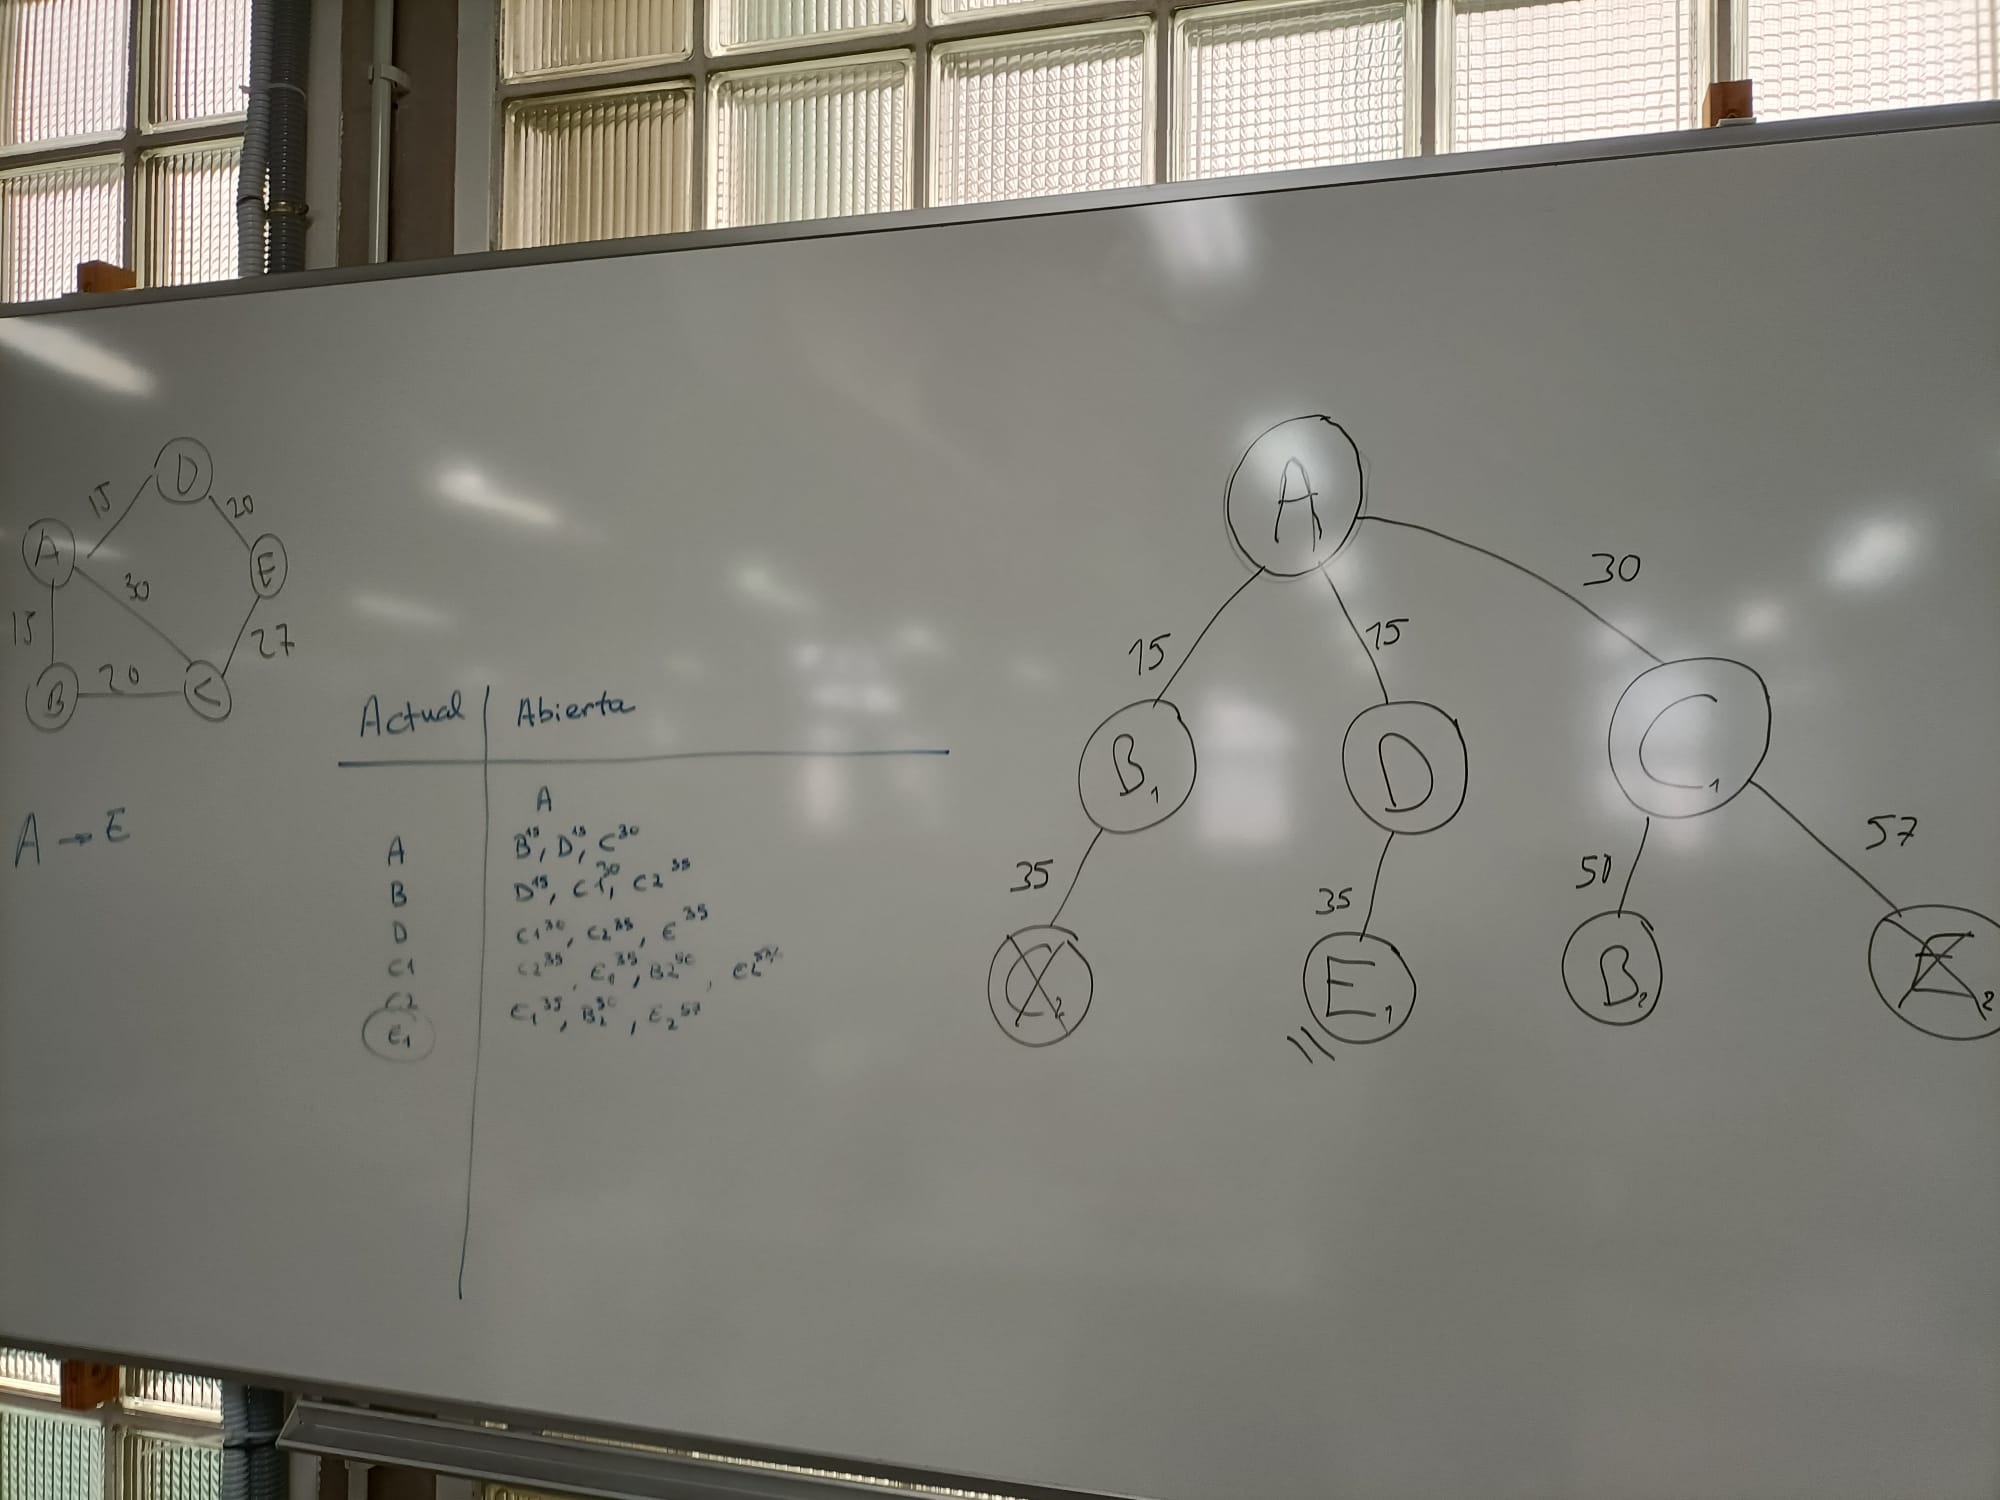 D
15
20
A
E
30
15
27
20
B
C
A → E
Actual | Abierta
A
A B¹⁵, D¹⁵, C³⁰
B D¹⁵, C1³⁰, C2³⁵
D C1³⁰, C2³⁵, E³⁵
C1 C2³⁵, E₁³⁵, B2⁵⁰, E2⁵⁷
C2 E₁³⁵, B₂⁵⁰, E₂⁵⁷
E₁
A
30
15
15
B₁
D
C₁
35
35
50
57
C₂
E₁
B₂
E₂